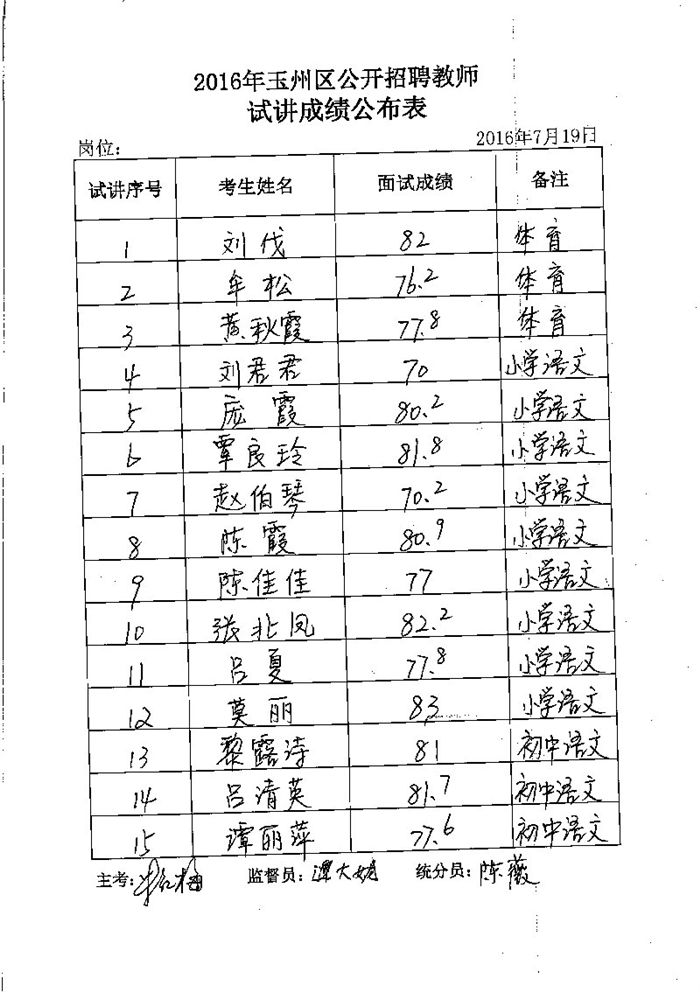 2016年玉州区公开招聘教师
试讲成绩公布表
岗位: 2016年7月19日
试讲序号 考生姓名 面试成绩 备注
1 刘伐 82 体育
2 牟松 76.2 体育
3 黄秋霞 77.8 体育
4 刘君君 70 小学语文
5 庞霞 80.2 小学语文
6 覃良玲 81.8 小学语文
7 赵伯琴 70.2 小学语文
8 陈霞 80.9 小学语文
9 陈佳佳 77 小学语文
10 张北凤 82.2 小学语文
11 吕夏 77.8 小学语文
12 莫丽 83 小学语文
13 黎露诗 81 初中语文
14 吕清英 81.7 初中语文
15 谭丽萍 77.6 初中语文
主考: 监督员: 统分员: 陈薇